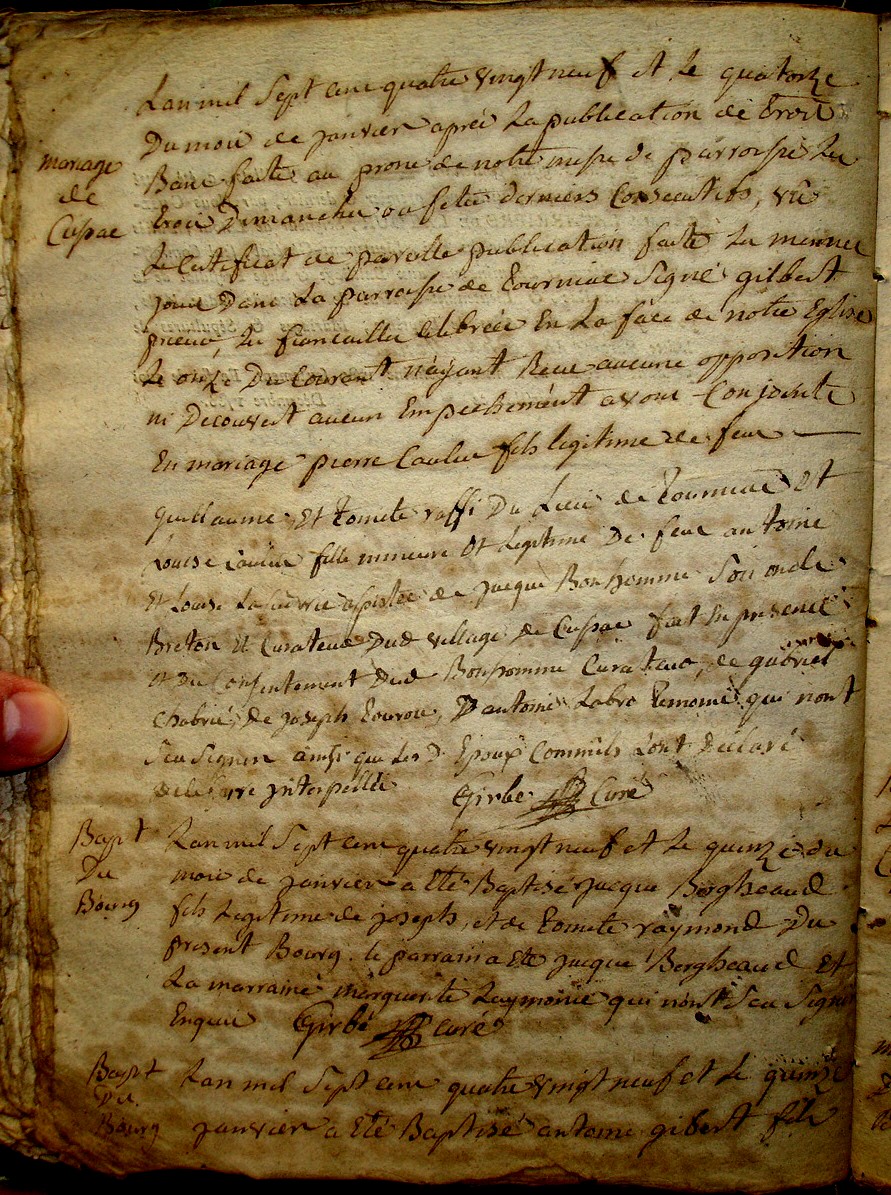 Lan mil Sept cent quatre vingt neuf et Le quatorze
Du mois de janvier aprés La publication de trois
mariage
de
Cussac
Banc faite au prone de notre messe de parroisse Les
trois Dimanches ou fetes derniers Consecutifs, vû
Le Certificat de pareille publication faite Les memes
jours Dans La parroisse de tourniac Signé gilbert
prieur, Les fiancailles celebrées En La face de notre Eglise
Le onze Du Courant n'ayant Recu aucune opposition
ni Decouvert aucun Empechement avons Conjoints
En mariage pierre fils legitime de feu
guillaume Et tomete raffi Du Lieu de tourniac Et
Louise fille mineure Et Legitime De feu antoine
Et Louise assistée de jacque Bonhomme Son oncle
Breton Et Curateur Dud village de Cussac fait En presence
Et Du Consentement Dud Bonhomme Curateur, de gabriel
Chabrié, de joseph tourou, D'antoine Labro temoins qui nont
Seu Signer ainsi que Les D. Epoux Comme ils Lont Declaré
de ce jnterpellés Girbe Curé
Bapt
Du
Bourg
Lan mil Sept cent quatre vingt neuf et Le quinze du
mois de janvier a Eté Baptisé jacque Bergheaud
fils Legitime de joseph, et de tomete raymond Du
present Bourg. le parrain a Eté jacque Bergheaud Et
La marraine marguerite Laymonie qui nont Seu Signer
Enquis Girbé curé
Bapt
Du
Bourg
Lan mil Sept cent quatre vingt neuf et Le quinze
janvier a Eté Baptisé antoine gibert fils